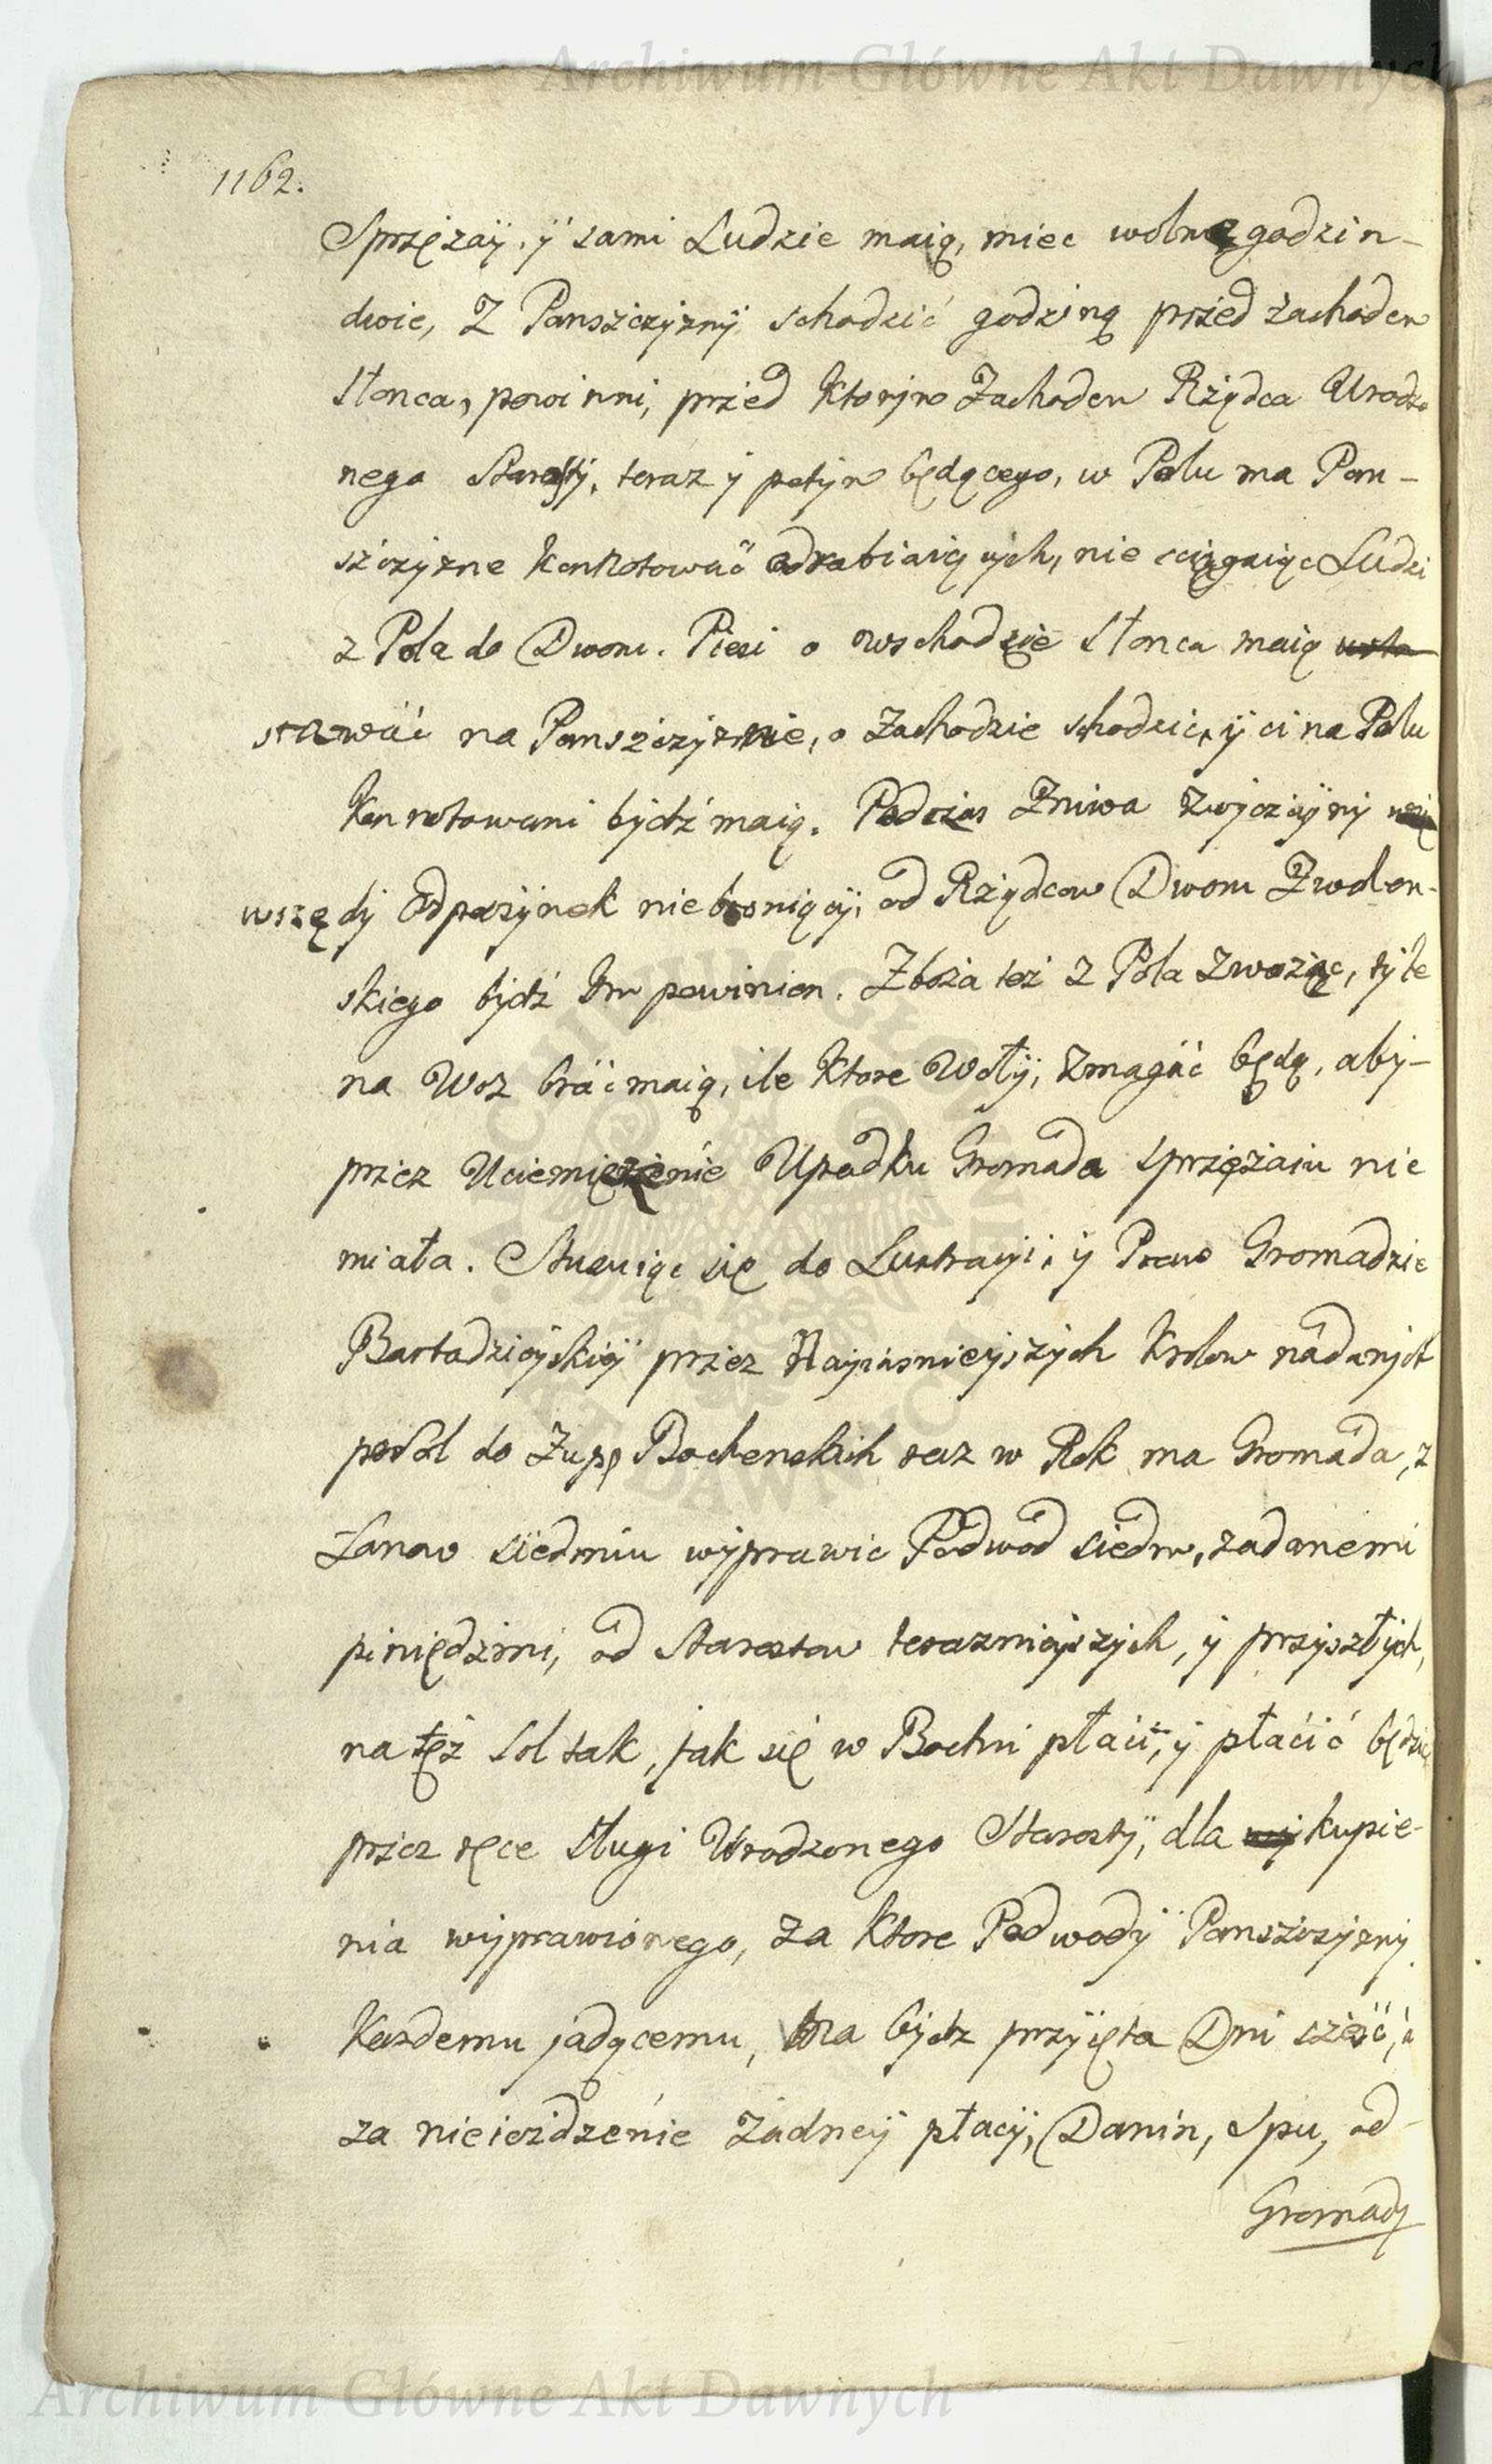 Archiwum Główne Akt Dawnych
1162.
Sprzęzaÿ. ÿ sami Ludzie maią, miec wolne godzin-
dwie, Z Panszczyznÿ schodzić godziną przed zachodem
Słonca, powinni, przed Ktorym Zachodem Rządca Urodzo
nego Starosty, teraz y potym będącego, w Polu ma Pan-
szczyzne konnotować odrabiaiących, nie sciągaiąc Ludzi
z Pola do Dworu. Piesi o wschodzie Słonca maią wsta
stawać na Panszczyznie, o Zachodzie schodzic, y ci na Polu
Konnotowani bydź maią. Podczas Zniwa Zwyczayny
wszędy Odpoczynek niebroniący, od Rządcow Dworu Zwolen-
skiego bydź Im powinien. Zboża też z Pola zwożąc, tyle
na Woz brać maią, ile Ktore Wołÿ, Zmagać będą, aby-
przez Uciemięzęnie Upadku Gromada sprzężaiu nie
miała. Stosuiąc się do Lustracyi, y Praw Gromadzie
Bartodzieyskiey przez Nayiasnieyszych Krolow nadanych
po Sol do Żupp Bochenskich raz w Rok ma Gromada, z
Łanow siedmiu wyprawic Podwod siedm, zadanemi
piniędzmi, od Starostow teraznieyszych, y przyszłych,
na tęż Sol tak, jak się w Bochni płaci, y płacić będzie
przez ręce Sługi Urodzonego Starosty, dla wy kupie-
nia wyprawionego, za Ktore Podwodÿ Panszczyzny
Kazdemu jadącemu, ma bydz przyięta Dni szesć, a
za nieieżdzenie Żadneÿ płacÿ, Danin, Spu, od-
Gromady
Archiwum Główne Akt Dawnych